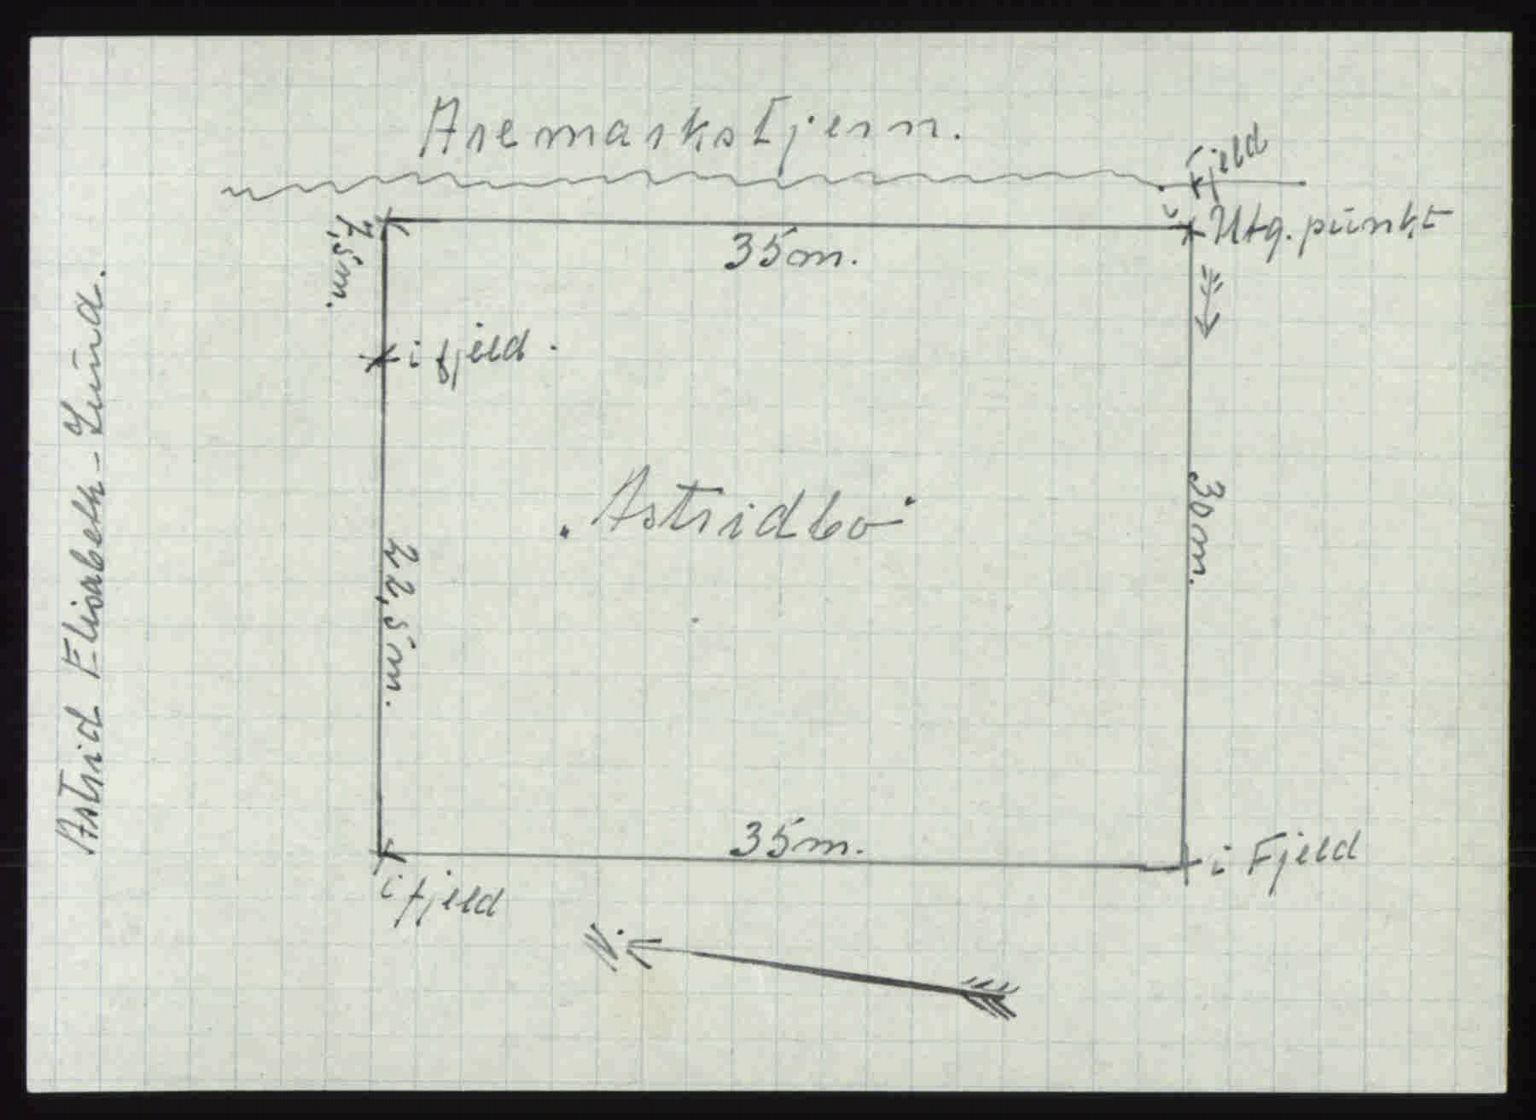 Aremarkstjern.
Fjeld
Utg. punkt
35m.
7,5m.
i fjeld.
"Astridbo"
30m.
22,5m.
Astrid Elisabeth Lund.
35m.
i Fjeld
i fjeld
N.